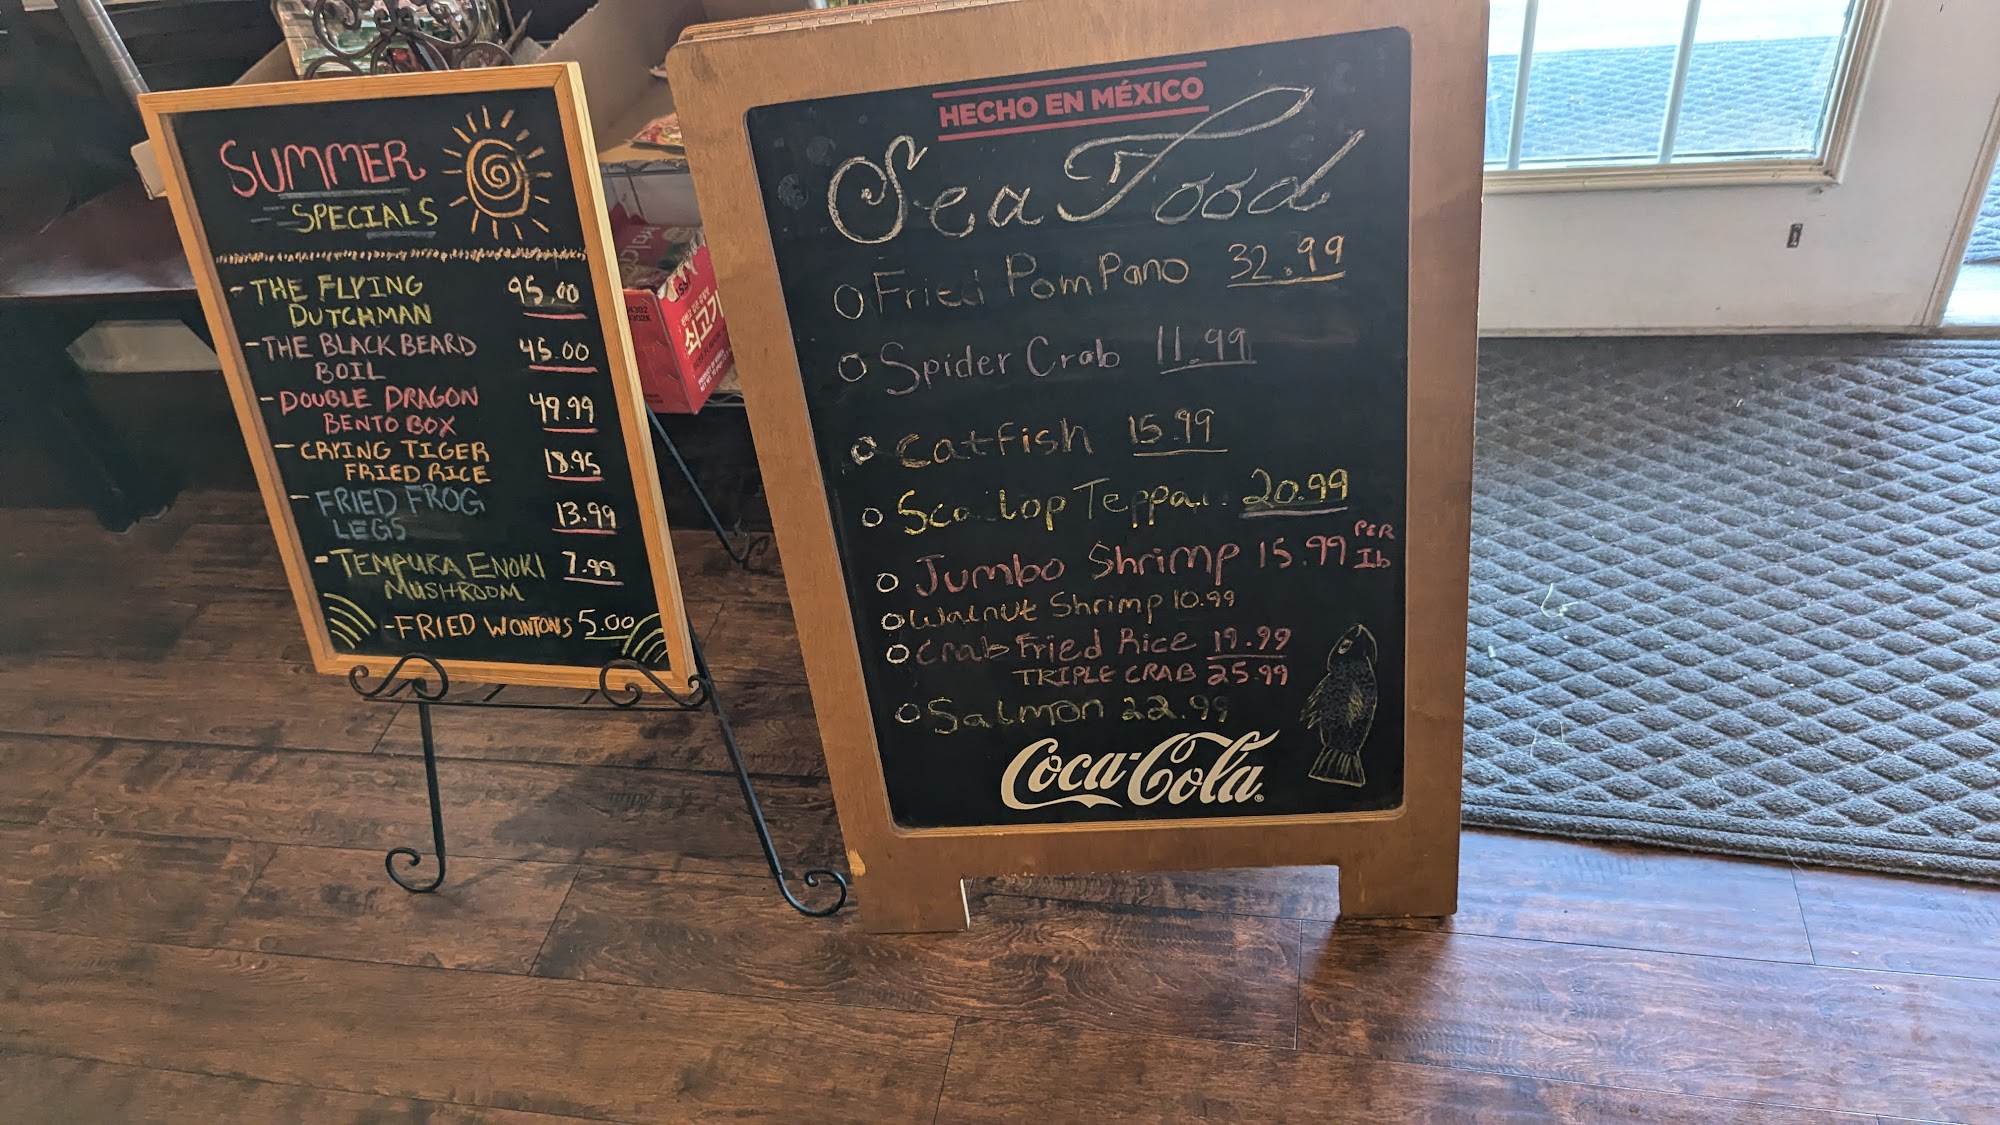 SUMMER
SPECIALS
- THE FLYING 95.00
DUTCHMAN
- THE BLACK BEARD 45.00
BOIL
- DOUBLE DRAGON 49.99
BENTO BOX
- CRYING TIGER 18.95
FRIED RICE
- FRIED FROG
LEGS 13.99
- TEMPURA ENOKI 7.99
MUSHROOM
- FRIED WONTONS 5.00
HECHO EN MÉXICO
Sea Food
Fried PomPano 32.99
Spider Crab 11.99
Catfish 15.99
Scallop 20.99
Jumbo Shrimp 15.99 PER
lb
Walnut Shrimp 10.99
Crab Fried Rice 19.99
TRIPLE CRAB 25.99
Salmon 22.99
Coca-Cola
쇠고기